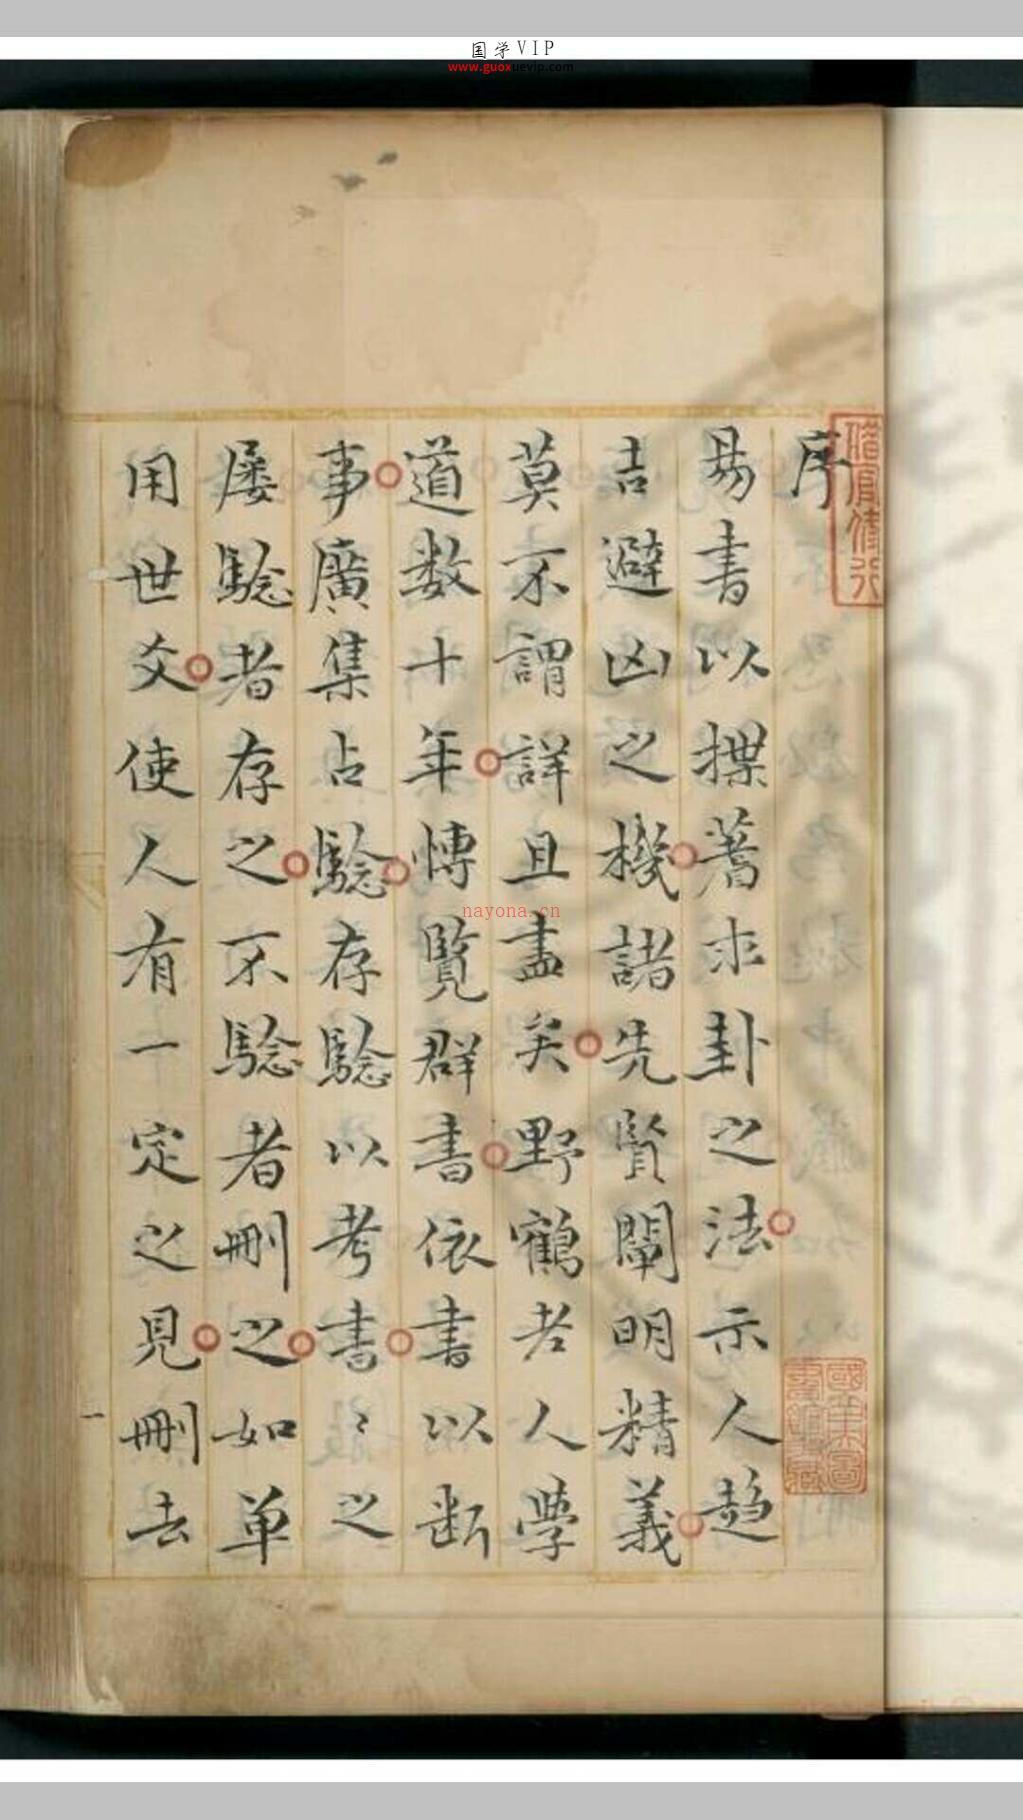 国学VIP
www.guoxuevip.com
序
易書以揲蓍求卦之法示人趨
吉避凶之機諸先賢闡明精義
莫不謂詳且盡矣野鶴老人學
道数十年博覧群書依書以断
事廣集占騐存騐以考書〻之
屡騐者存之不騐者刪之如单
用世爻使人有一定之見刪去
一
nayona.cn